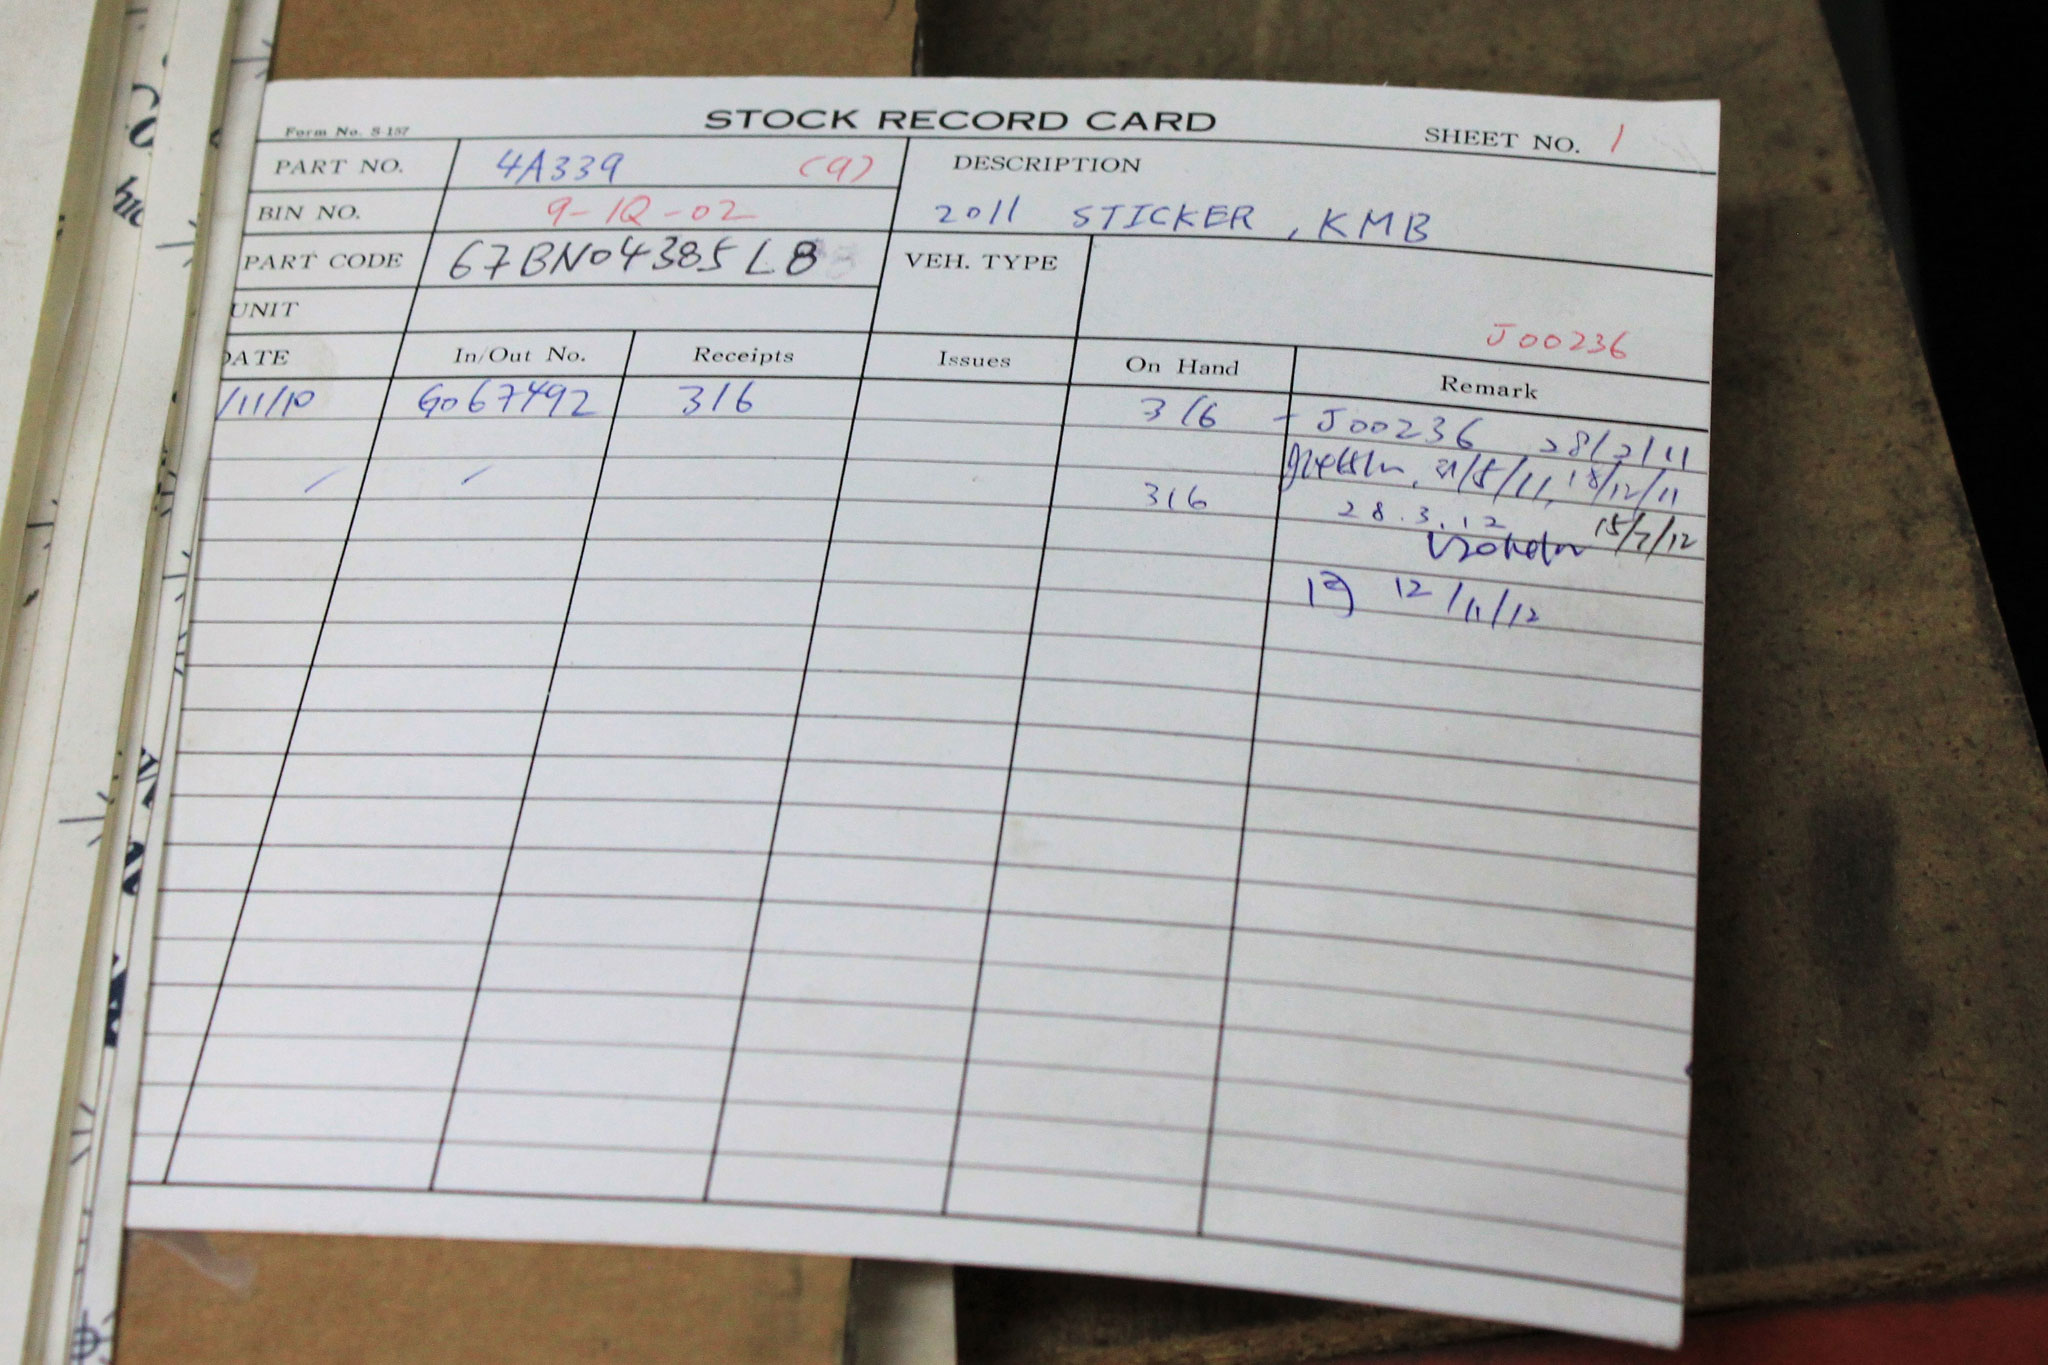 STOCK RECORD CARD
Form No. S-157
SHEET NO. 1
PART NO. 4A339 (9)
DESCRIPTION
BIN NO. 9-1Q-02
2011 STICKER, KMB
PART CODE 67BN04385L8
VEH. TYPE
UNIT
J00236
DATE In/Out No. Receipts Issues On Hand Remark
/11/10 G067492 316 316 - J00236 28/2/11
21/5/11, 18/12/11
316 28.3.12 15/7/12
12/11/12